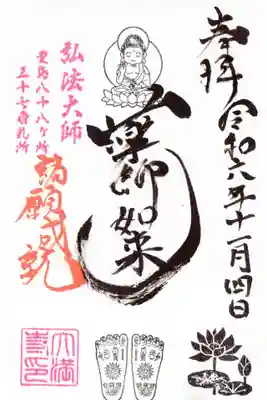 奉拝 令和六年十一月四日
薬師如来
弘法大師
豊島八十八ヶ所
三十七番札所
諸願成就